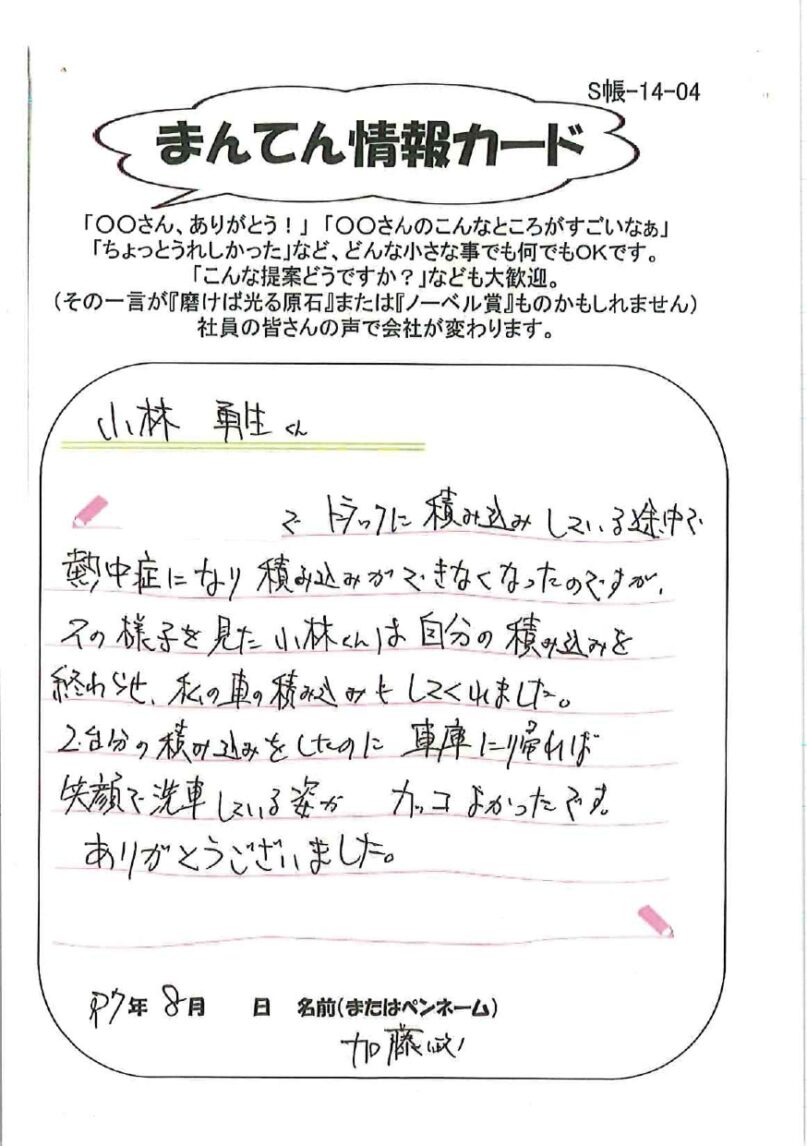 S帳-14-04
まんてん情報カード
「〇〇さん、ありがとう！」「〇〇さんのこんなところがすごいなぁ」
「ちょっとうれしかった」など、どんな小さな事でも何でもOKです。
「こんな提案どうですか？」なども大歓迎。
（その一言が『磨けば光る原石』または『ノーベル賞』ものかもしれません）
社員の皆さんの声で会社が変わります。
小林 勇生くん
で トラックに 積み込み している途中で
熱中症になり 積み込みができなくなったのですが、
その様子を見た小林くんは自分の積み込みを
終わらせ、私の車の積み込みもしてくれました。
2台分の積み込みをしたのに 車庫に帰れば
笑顔で洗車している姿が カッコよかったです。
ありがとうございました。
R7年 8月 日 名前（またはペンネーム）
加藤